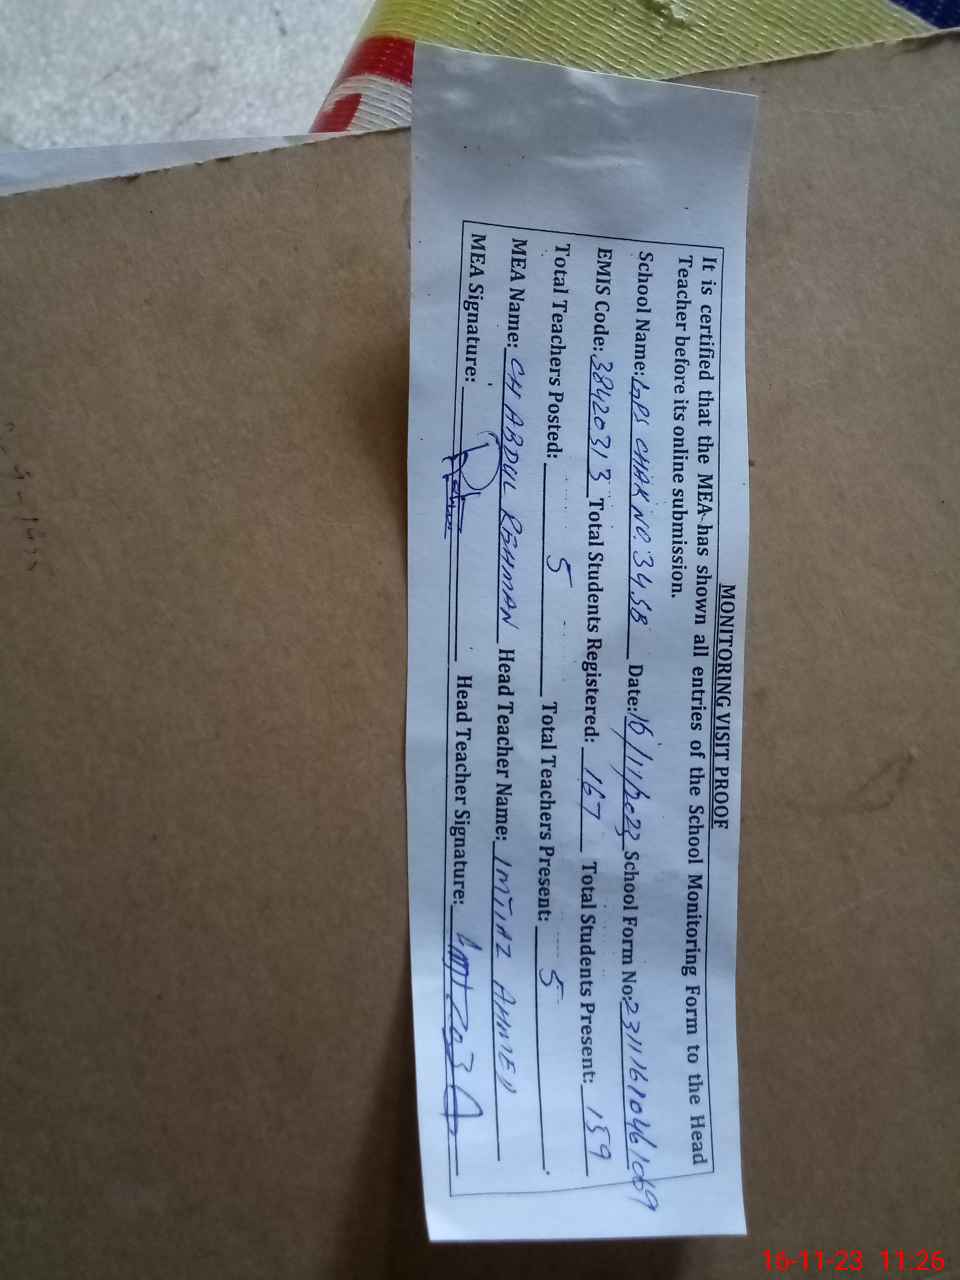 MONITORING VISIT PROOF
It is certified that the MEA has shown all entries of the School Monitoring Form to the Head
Teacher before its online submission.
School Name: GPS CHAK NO. 34 SB Date: 16/11/2023 School Form No: 23111610461069
EMIS Code: 38420313 Total Students Registered: 167 Total Students Present: 159
Total Teachers Posted: 5 Total Teachers Present: 5
MEA Name: CH ABDUL REHMAN Head Teacher Name: IMTIAZ AHMED
MEA Signature: Head Teacher Signature:
16-11-23 11:26